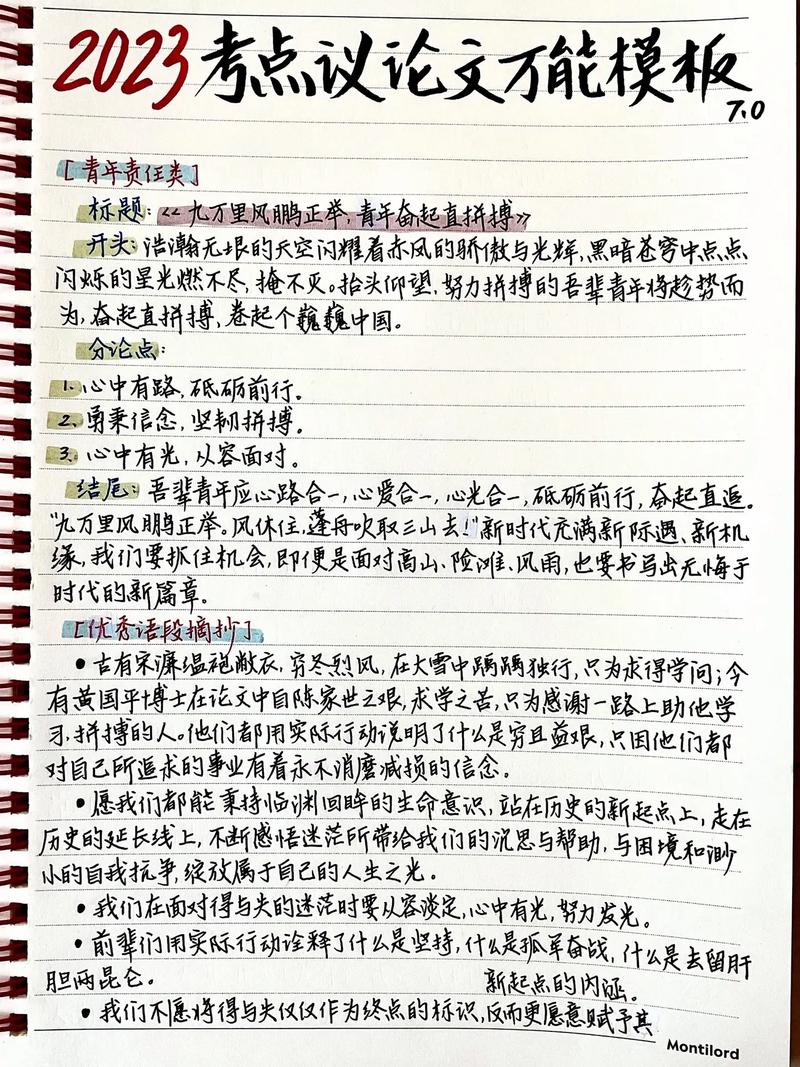 2023考点议论文万能模板
7.0
[青年责任类]
标题:《九万里风鹏正举,青年奋起直拼搏》
开头:浩瀚无垠的天空闪耀着赤凤的骄傲与光辉,黑暗苍穹中点点
闪烁的星光燃不尽,掩不灭。抬头仰望,努力拼搏的吾辈青年将趁势而
为,奋起直拼搏,卷起个巍巍中国。
分论点:
1.心中有路,砥砺前行。
2.勇秉信念,坚韧拼搏。
3.心中有光,从容面对。
结尾:吾辈青年应心路合一,心爱合一,心光合一,砥砺前行,奋起直追。
"九万里风鹏正举。风休住,蓬舟吹取三山去!"新时代充满新际遇、新机
缘,我们要抓住机会,即便是面对高山、险滩、风雨,也要书写出无悔于
时代的新篇章。
[优秀语段摘抄]
•古有宋濂缊袍敝衣,穷冬烈风,在大雪中踽踽独行,只为求得学问;今
有黄国平博士在论文中自陈家世之艰,求学之苦,只为感谢一路上助他学
习、拼搏的人。他们都用实际行动说明了什么是穷且益艰,只因他们都
对自己所追求的事业有着永不消磨减损的信念。
•愿我们都能秉持临渊回眸的生命意识,站在历史的新起点上,走在
历史的延长线上,不断感悟迷茫所带给我们的沉思与帮助,与困境和渺
小的自我抗争,绽放属于自己的人生之光。
•我们在面对得与失的迷茫时要从容淡定,心中有光,努力发光。
•前辈们用实际行动诠释了什么是坚持,什么是孤军奋战,什么是去留肝
胆两昆仑。
•我们不愿将得与失仅仅作为终点的标识,反而更愿意赋予其
新起点的内涵。
Montilord